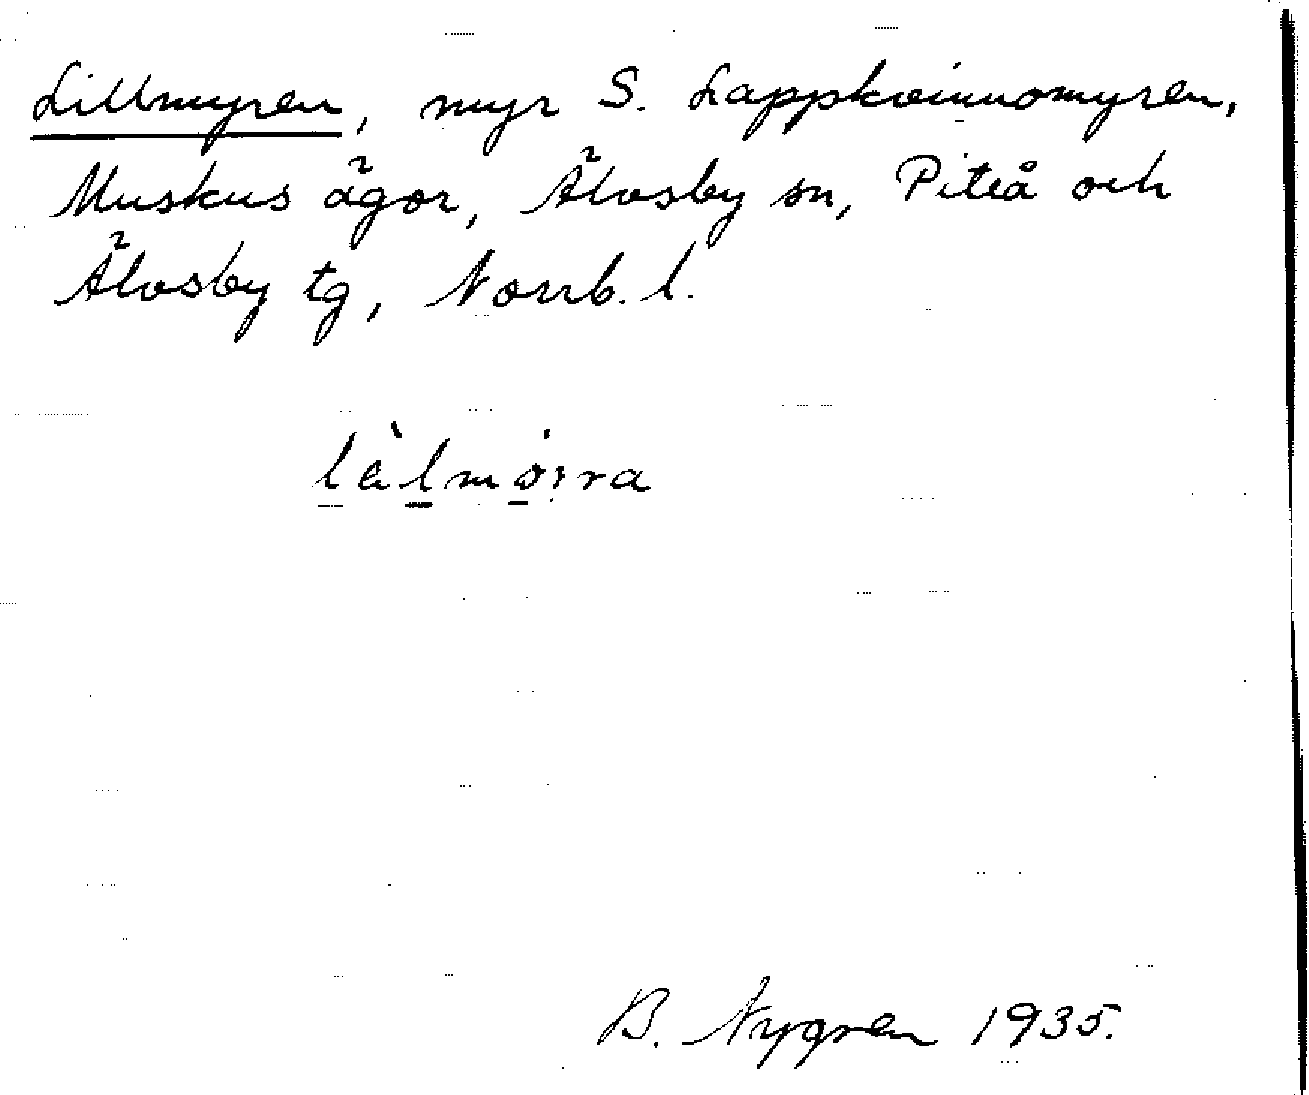 Lillmyren, myr S. Lappkvinnomyren,
Muskus ägor, Älvsby sn, Piteå och
Älvsby tg, Norrb. l.
B. Nygren 1935.